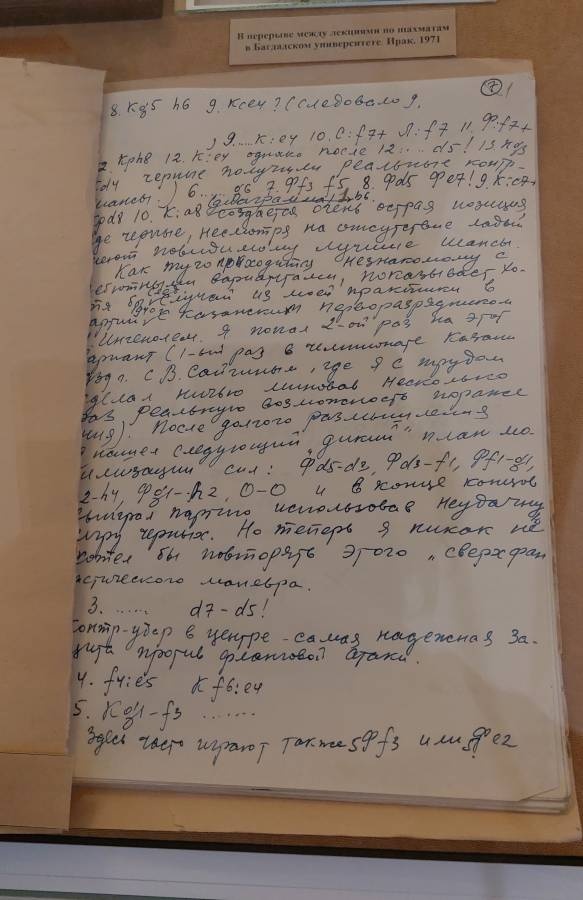 В перерыве между лекциями по шахматам
в Багдадском университете. Ирак. 1971
7
8. Kg5 h6 9. Kce4? (Следовало 9.
, 9.... К:e4 10. С:f7+ Л:f7 11. Ф:f7+
2. Kph8 12. К:e4 однако после 12.... d5! 13
d4 черные получили реальные контр-
шансы.) 6.... g6 7. Фf3 f5 8. Фd5 Фe7! 9. К:c7+
pd8 10. К:a8 b6.
создается очень острая позиция
где черные, несмотря на отсутствие ладьи
имеют повидимому лучшие шансы.
Как туго приходится незнакомому с
дебютными вариантами, показывает хо-
тя бы случай из моей практики в
партии с казанским перворазрядником
Ингенолем. Я попал 2-ой раз на этот
вариант (1-ый раз в чемпионате Казани
с В. Сайгиным, где я с трудом
сделал ничью миновав несколько
раз реальную возможность пораже
ния). После долгого размышления
я нашел следующий „дикий" план мо-
билизации сил: Фd5-d3, Фd3-f1, Фf1-g1,
2-h4, Фg1-h2, O-O и в конце концов
выиграл партию использовав неудачну
игру черных. Но теперь я никак не
хотел бы повторять этого „сверхфан
астического маневра.
3. ...... d7-d5!
Контр-удар в центре - самая надежная за-
щита против фланговой атаки.
4. f4:e5 Kf6:e4
5. Kg1-f3 .......
Здесь часто играют также 5 Фf3 или 5. Фe2